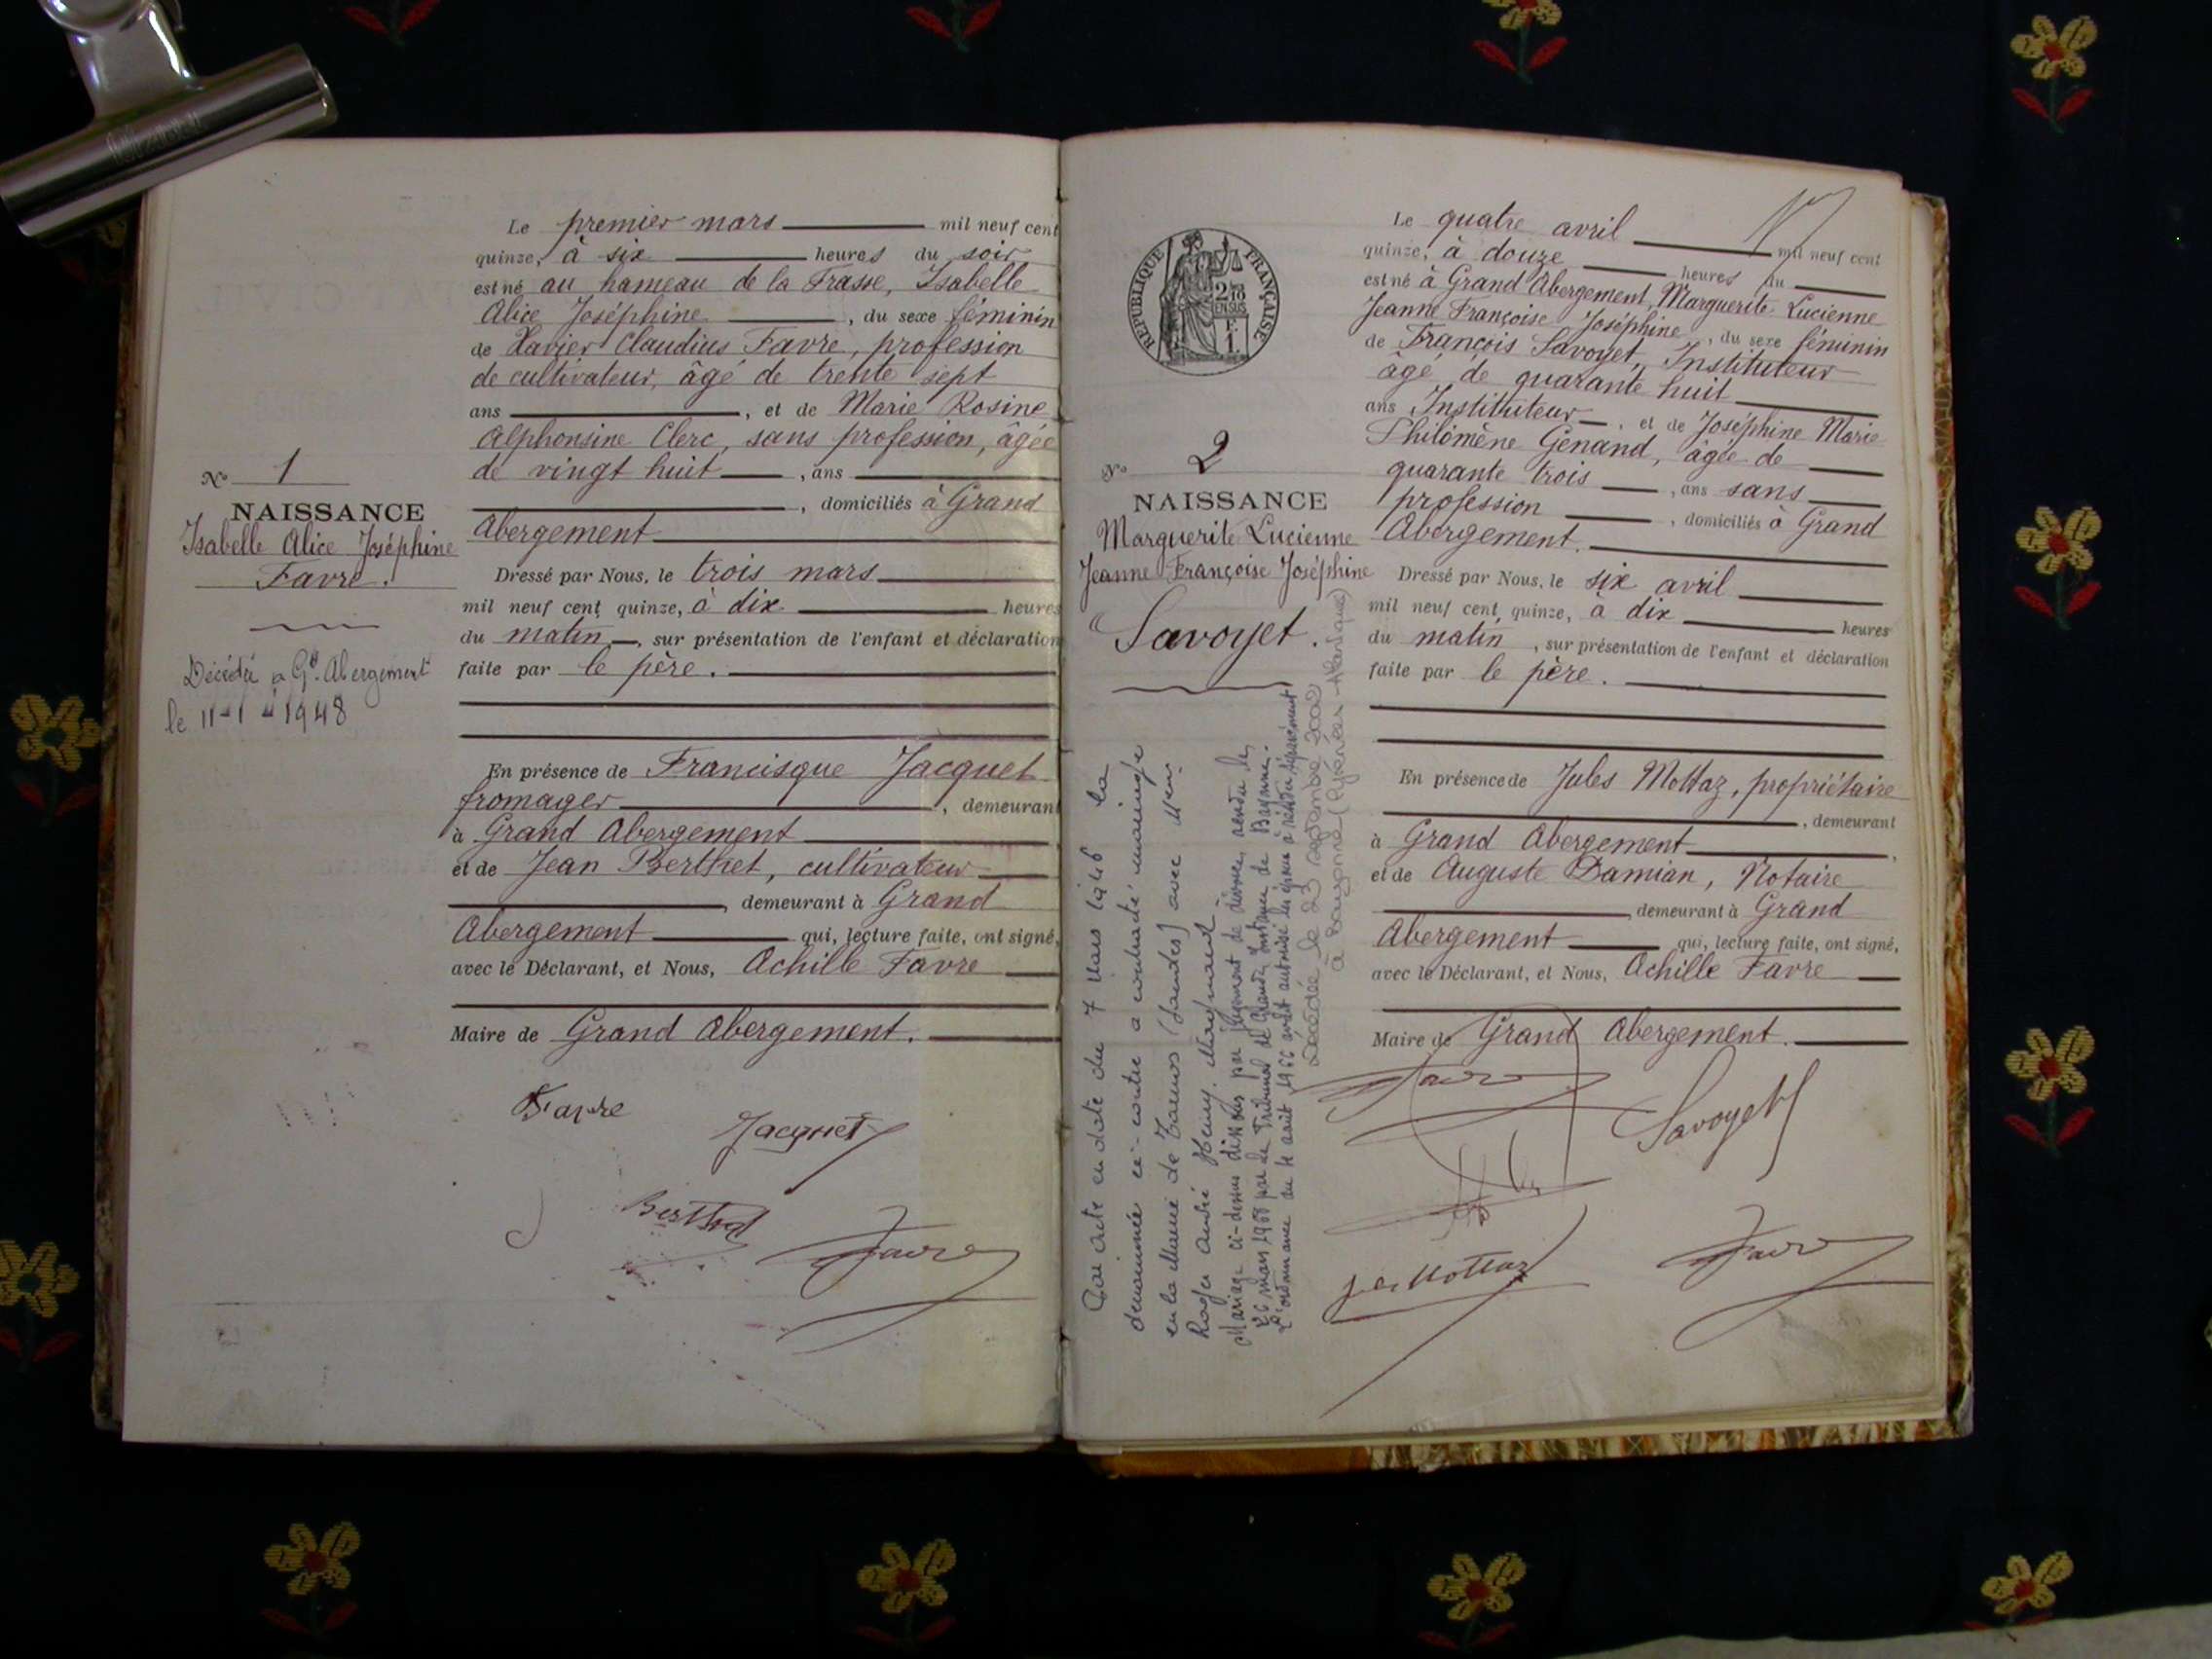 Le premier mars mil neuf cent
quinze, à six heures du soir
est né au hameau de la Frasse, Isabelle
Alice Joséphine, du sexe féminin
de Xavier Claudius Favre, profession
de cultivateur, âgé de trente sept
ans, et de Marie Rosine
Alphonsine Clerc, sans profession, âgée
de vingt huit, ans
, domiciliés à Grand
Abergement
Dressé par Nous, le trois mars
mil neuf cent quinze, à dix heures
du matin, sur présentation de l'enfant et déclaration
faite par le père.
En présence de Francisque Jacquet
fromager, demeurant
à Grand Abergement
et de Jean Berthet, cultivateur
, demeurant à Grand
Abergement qui, lecture faite, ont signé,
avec le Déclarant, et Nous, Achille Favre
Maire de Grand Abergement.
Favre
Jacquet
Berthet
Favre
No 1
NAISSANCE
Isabelle Alice Joséphine
Favre.
Décédée à Gd Abergement
le 11-1-1948
REPUBLIQUE FRANÇAISE
2/10
EN SUS
F.
1.
No 2
NAISSANCE
Marguerite Lucienne
Jeanne Françoise Joséphine
Savoyet.
Par acte en date du 7 Mars 1946 la
dénommée ci-contre a contracté mariage
en la Mairie de (Landes) avec
Roger André Henry
Mariage ci-dessus dissous par jugement de divorce rendu le
26 mars 1968 par le Tribunal de Grande Instance de Bayonne.
L'ordonnance du août 1966 avait autorisé les époux à résider séparément
Décédée le 23 septembre 2002
à Bayonne (Pyrénées-Atlantiques)
Le quatre avril mil neuf cent
quinze, à douze heures du
est né à Grand Abergement, Marguerite Lucienne
Jeanne Françoise Joséphine, du sexe féminin
de François Savoyet, Instituteur
âgé de quarante huit
ans Instituteur, et de Joséphine Marie
Philomène Genand, âgée de
quarante trois, ans sans
profession, domiciliés à Grand
Abergement.
Dressé par Nous, le six avril
mil neuf cent quinze, à dix heures
du matin, sur présentation de l'enfant et déclaration
faite par le père.
En présence de Jules Mottaz, propriétaire
, demeurant
à Grand Abergement,
et de Auguste Damian, Notaire
, demeurant à Grand
Abergement qui, lecture faite, ont signé,
avec le Déclarant, et Nous, Achille Favre
Maire de Grand Abergement.
Favre
Savoyet
Jles Mottaz
Favre